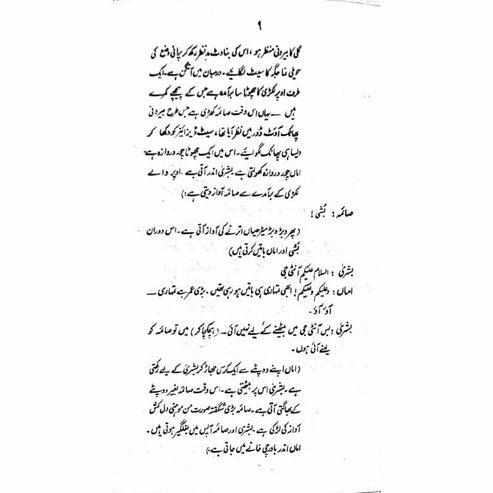 ۹
گلی کا بیرونی منظر ہو، اس کی بناوٹ مدِ نظر رکھ کر پرانی وضع کی
حویلی نما جگہ کا سیٹ لگائیے۔ درمیان میں آنگن ہے۔ ایک
طرف اوپر لکڑی کا چھوٹا سا برآمدہ ہے جس کے پیچھے کمرے
ہیں ۔ یہاں اس وقت صائمہ کھڑی ہے جس طرح بیرونی
پھاٹک آؤٹ ڈور میں نظر آیا تھا، سیٹ ڈیزائنر کو دکھا کر
ویسا ہی پھاٹک لگوائیے۔ اس میں ایک چھوٹا چور دروازہ ہے
اماں چور دروازہ کھولتی ہے بشریٰ اندر آتی ہے۔ اوپر والے
لکڑی کے برآمدے سے صائمہ آواز دیتی ہے:)
صائمہ: بُشی!
(پھر دڑ دڑ سیڑھیاں اترنے کی آواز آتی ہے۔ اس دوران
بُشی اور اماں باتیں کرتی ہیں)
بشریٰ: السلام علیکم آنٹی جی
اماں: وعلیکم وعلیکم! ابھی تمہاری ہی باتیں ہو رہی تھیں۔ بڑی عمر ہے تمہاری ۔۔
آؤ آؤ۔
بشریٰ: بس آنٹی جی میں بیٹھنے کے لیے نہیں آئی۔ (ہچکچا کر) میں تو صائمہ کو
لینے آئی ہوں۔
(اماں اپنے دوپٹے سے ایک کرسی جھاڑ کر بشریٰ کے لیے رکھتی
ہے۔ بشریٰ اس پر بیٹھتی ہے۔ اس وقت صائمہ بغیر دوپٹے
کے بھاگتی آتی ہے۔ صائمہ بڑی شگفتہ صورت من موہنی دل کش
آواز کی لڑکی ہے۔ بشریٰ اور صائمہ آپس میں بغلگیر ہوتی ہیں۔
اماں اندر باورچی خانے میں جاتی ہے:)